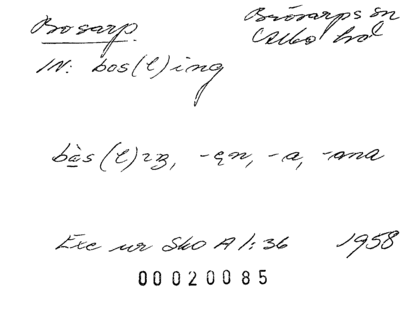 Bosarp. Brösarps sn
Albo hd
IN: bos(l)ing
bàs(l)ıŋ, -ęn, -a, -ana
Exc ur Sko A 1:36 1958
00020085